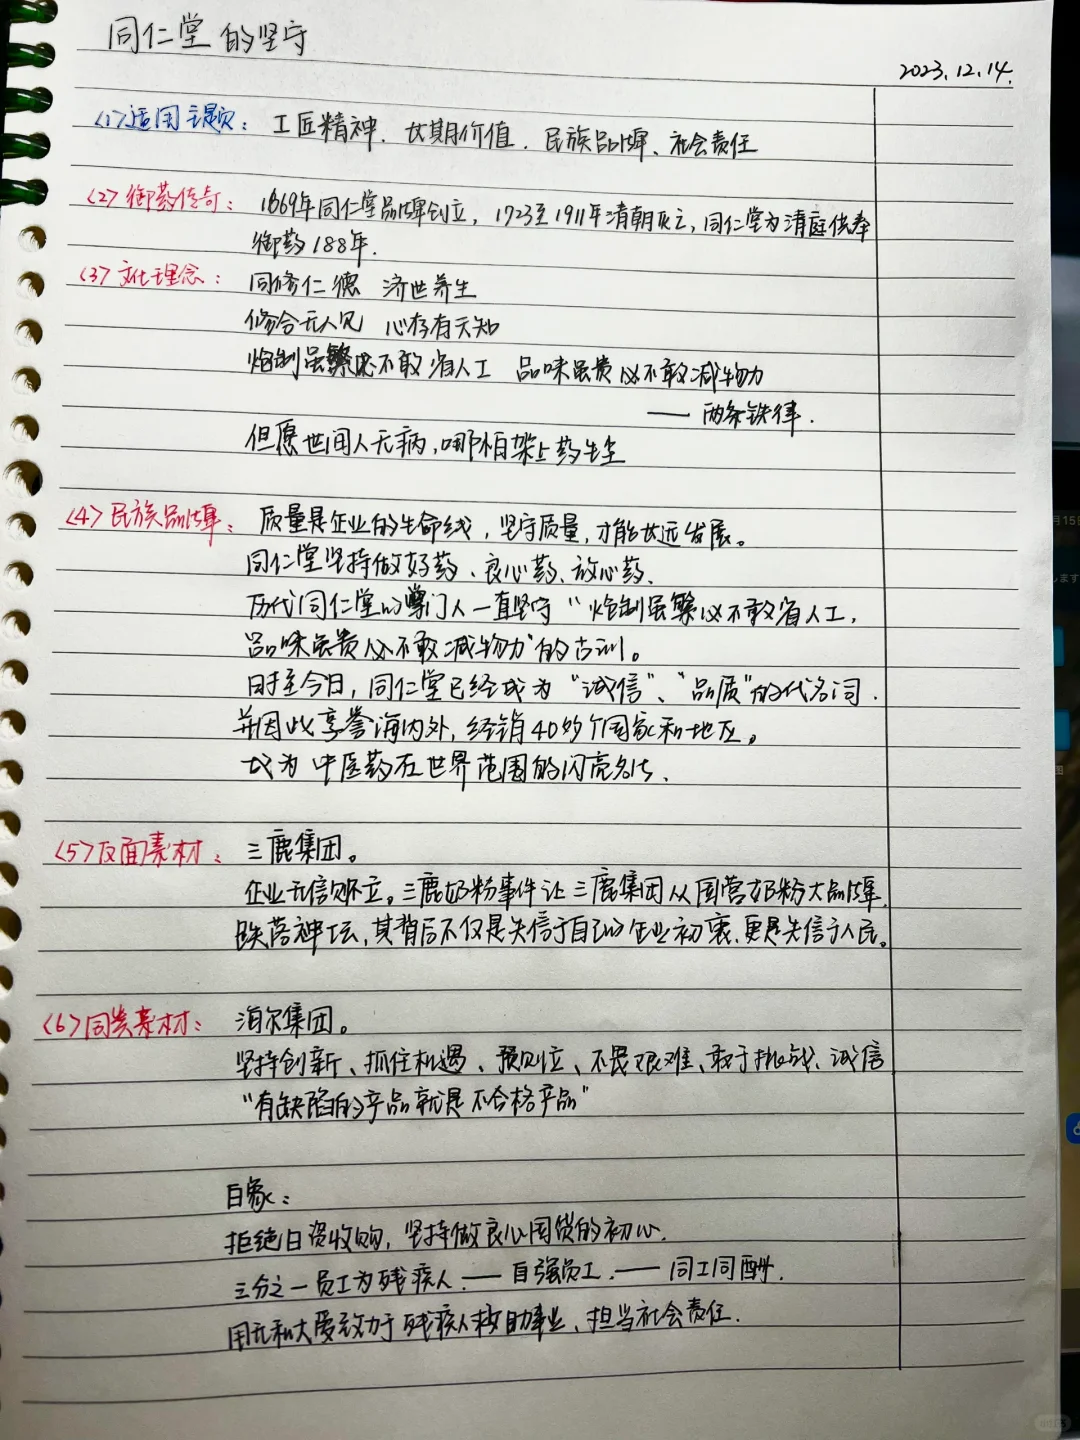 同仁堂的坚守
2023.12.14.
<1>适用主题：工匠精神、长期价值、民族品牌、社会责任
<2>御药传奇：1669年同仁堂品牌创立，1723至1911年清朝灭亡，同仁堂为清庭供奉
御药188年.
<3>文化理念：同修仁德 济世养生
修合无人见 心存有天知
炮制虽繁必不敢省人工 品味虽贵必不敢减物力
——两条铁律.
但愿世间人无病，哪怕架上药生尘
<4>民族品牌：质量是企业的生命线，坚守质量，才能长远发展。
同仁堂坚持做好药、良心药、放心药、
历代同仁堂的掌门人一直坚守“炮制虽繁必不敢省人工，
品味虽贵必不敢减物力”的古训。
时至今日，同仁堂已经成为“诚信”、“品质”的代名词.
并因此享誉海内外，经销40多个国家和地区。
成为中医药在世界范围的闪亮名片、
<5>反面素材：三鹿集团。
企业无信则不立。三鹿奶粉事件让三鹿集团从国营奶粉大品牌
跌落神坛，其背后不仅是失信于自己的企业初衷、更是失信于人民。
<6>同类素材：海尔集团。
坚持创新、抓住机遇、预见到位、不畏艰难、敢于挑战、诚信
“有缺陷的产品就是不合格产品”
白象：
拒绝日资收购，坚持做良心国货的初心.
三分之一员工为残疾人.——自强员工.——同工同酬.
用无私大爱致力于残疾人救助事业、担当社会责任.